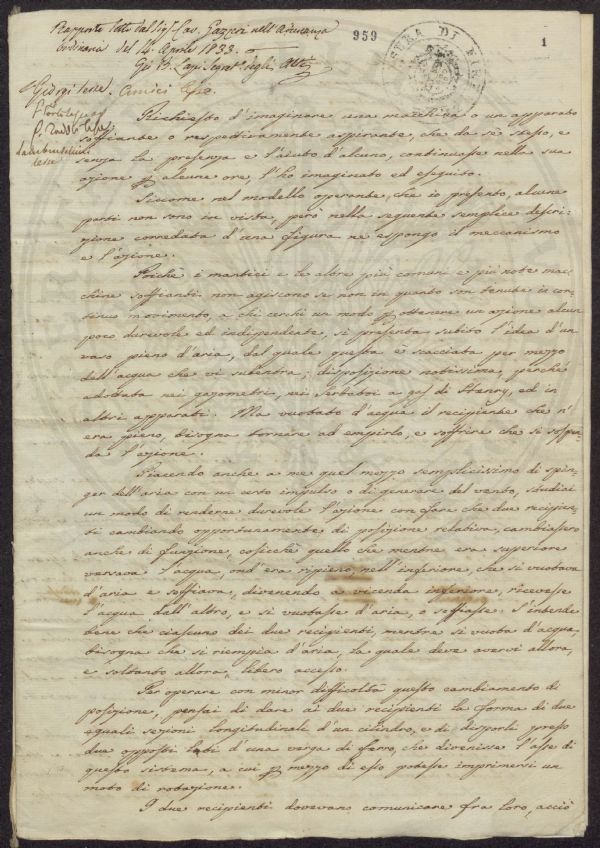 Rapporto letto dal Sig.r Cav. Gazzeri nell'Adunanza
ordinaria del 14. Aprile 1833.
959
1
Richiesto d'imaginare una macchina o un apparato
soffiante o respettivamente aspirante, che da sè stesso, e
senza la presenza e l'aiuto d'alcuno, continuasse nella sua
azione p alcune ore, l'ho imaginato ed eseguito.
Siccome nel modello operante, che io presento, alcune
parti non sono in vista, però nella seguente semplice descri-
zione corredata d'una figura ne espongo il meccanismo
e l'azione.
Poichè i mantici e le altre più comuni e più note mac-
chine soffianti non agiscono se non in quanto son tenute in con-
tinuo movimento, a chi cerchi un modo p ottenere un azione alcun
poco durevole ed independente, si presenta subito l'idea d'un
vaso pieno d'aria, dal quale questa è scacciata per mezzo
dell'acqua che vi subentra; disposizione notissima, perchè
adottata nei gazometri, nei serbatoi a gas di ed in
altri apparati. Ma vuotato d'acqua il recipiente che n'
era pieno, bisogna tornare ad empirlo, e soffrire che si sospen-
da l'azione.
Piacendo anche a me quel mezzo semplicissimo di spin-
ger dell'aria con un certo impulso o di generare del vento, studiai
un modo di renderne durevole l'azione con fare che due recipien-
ti cambiando opportunamente di posizione relativa, cambiassero
anche di funzione, cosicchè quello che mentre era superiore
versava l'acqua, ond'era ripieno, nell'inferiore, che si vuotava
d'aria e soffiava, divenendo a vicenda inferiore, ricevesse
l'acqua dall'altro, e si vuotasse d'aria, o soffiasse. S'intende
bene che ciascuno dei due recipienti, mentre si vuota d'acqua,
bisogna che si riempia d'aria, la quale deve avervi allora,
e soltanto allora, libero accesso.
Per operare con minor difficoltà questo cambiamento di
posizione, pensai di dare ai due recipienti la forma di due
eguali sezioni longitudinali d'un cilindro, e di disporli presso
due opposti lati d'una verga di ferro, che divenisse l'asse di
questo sistema, a cui p mezzo di esso potesse imprimersi un
moto di rotazione.
I due recipienti dovevano comunicare fra loro, acciò